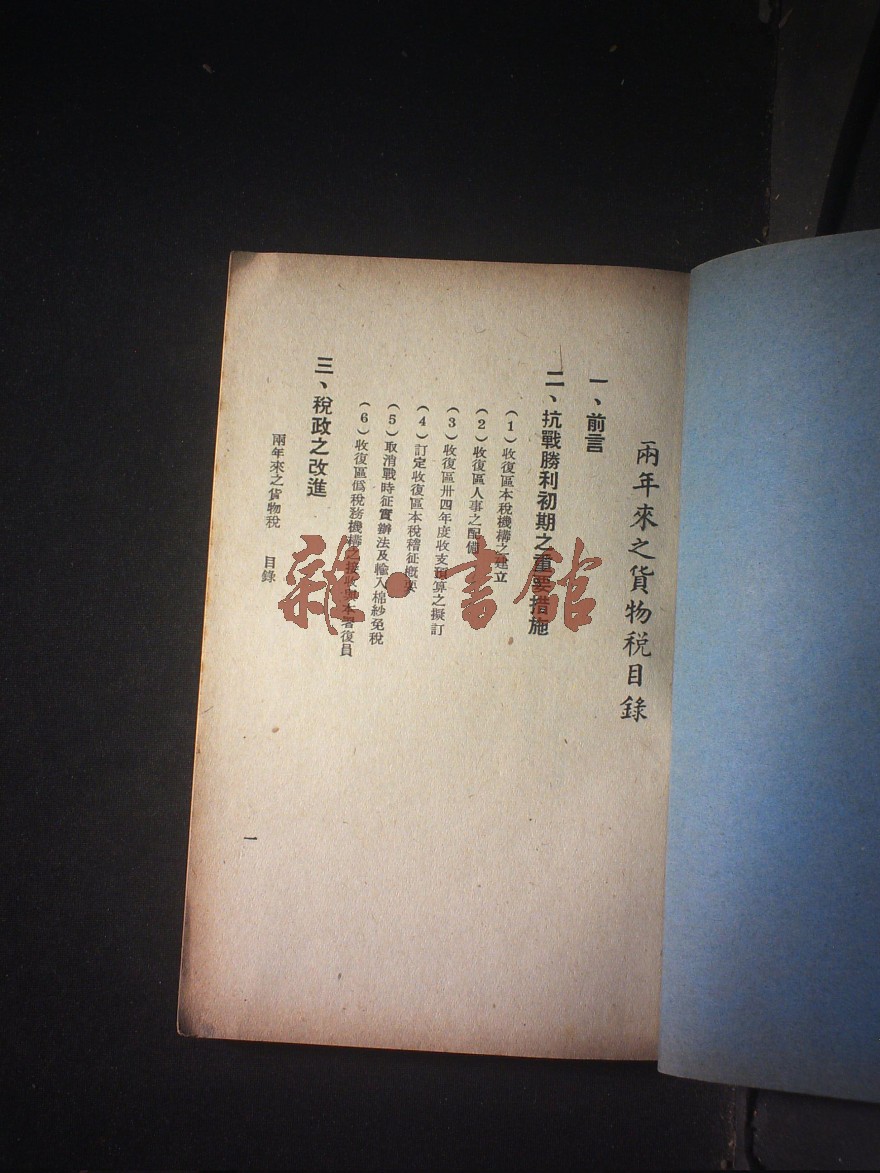 兩年來之貨物稅目錄
一、前言
二、抗戰勝利初期之重要措施
（1）收復區本稅機構之建立
（2）收復區人事之配備
（3）收復區卅四年度收支預算之擬訂
（4）訂定收復區本稅稽征概要
（5）取消戰時征實辦法及輸入棉紗免稅
（6）收復區偽稅務機構之接收與本署復員
三、稅政之改進
兩年來之貨物稅　目錄
一
雜·書館